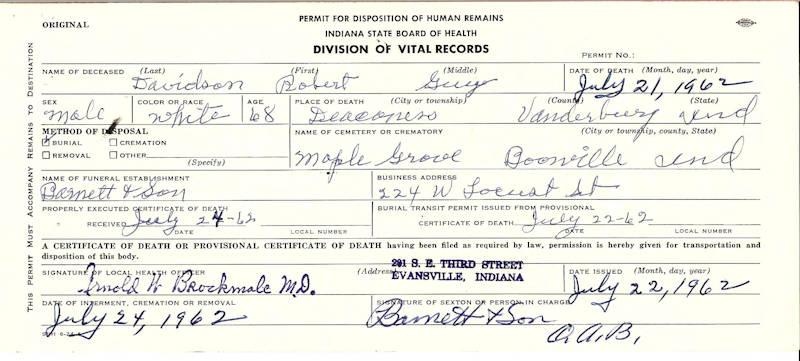 ORIGINAL
PERMIT FOR DISPOSITION OF HUMAN REMAINS
INDIANA STATE BOARD OF HEALTH
DIVISION OF VITAL RECORDS
PERMIT NO.:
THIS PERMIT MUST ACCOMPANY REMAINS TO DESTINATION
NAME OF DECEASED (Last) (First) (Middle) DATE OF DEATH (Month, day, year)
Davidson Robert Guy July 21, 1962
SEX COLOR OR RACE AGE PLACE OF DEATH (City or township) (County) (State)
Male White 68 Deaconess Vanderburg Ind
METHOD OF DISPOSAL NAME OF CEMETERY OR CREMATORY (City or township, county, State)
BURIAL CREMATION
REMOVAL OTHER
(Specify)
Maple Grove Boonville Ind
NAME OF FUNERAL ESTABLISHMENT BUSINESS ADDRESS
Barnett & Son 224 W Locust St
PROPERLY EXECUTED CERTIFICATE OF DEATH BURIAL TRANSIT PERMIT ISSUED FROM PROVISIONAL
RECEIVED July 24-62 CERTIFICATE OF DEATH July 22-62
DATE LOCAL NUMBER DATE LOCAL NUMBER
A CERTIFICATE OF DEATH OR PROVISIONAL CERTIFICATE OF DEATH having been filed as required by law, permission is hereby given for transportation and
disposition of this body.
SIGNATURE OF LOCAL HEALTH OFFICER (Address) DATE ISSUED (Month, day, year)
Arnold W Brockmole M.D. 201 S. E. THIRD STREET
EVANSVILLE, INDIANA July 22, 1962
DATE OF INTERMENT, CREMATION OR REMOVAL SIGNATURE OF SEXTON OR PERSON IN CHARGE
July 24, 1962 Barnett & Son
O.A.B.